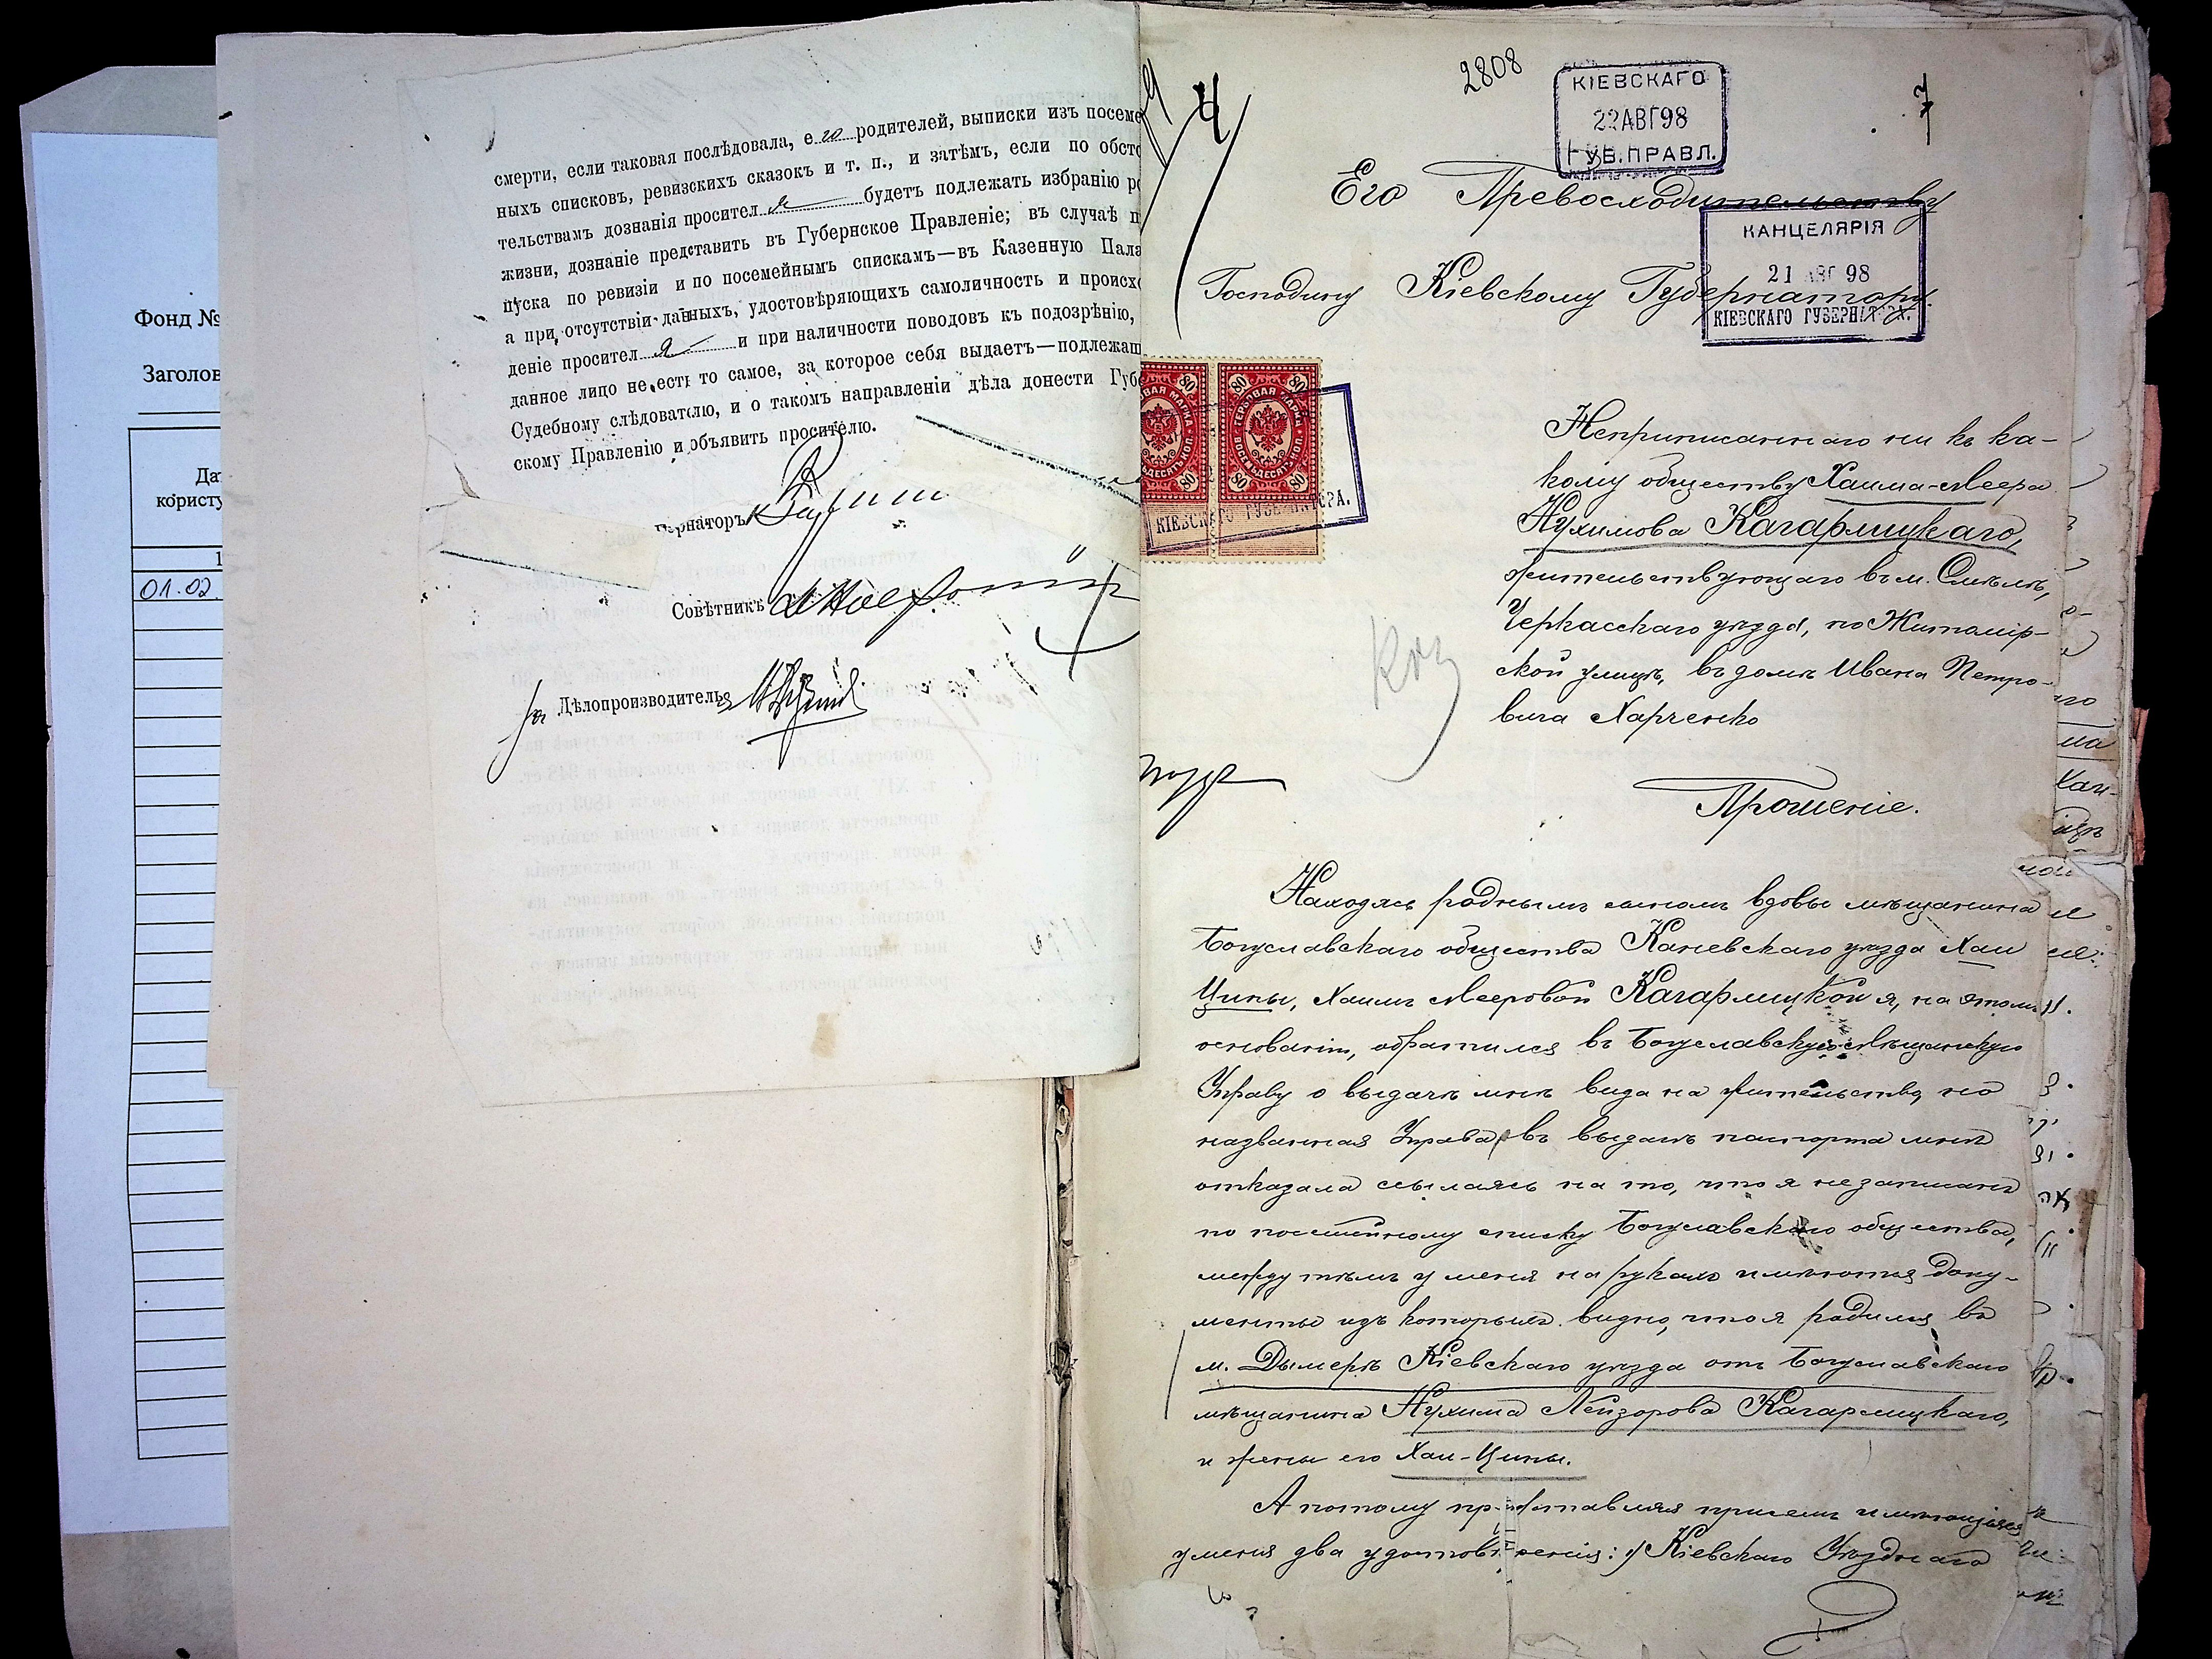 Фонд №
Заголов
Да
користу
1
01.02.
смерти, если таковая послѣдовала, е го родителей, выписки изъ посеме
ныхъ списковъ, ревизскихъ сказокъ и т. п., и затѣмъ, если по обсто
тельствамъ дознанія просител я будетъ подлежать избранію ро
жизни, дознаніе представить въ Губернское Правленіе; въ случаѣ п
пуска по ревизіи и по посемейнымъ спискамъ—въ Казенную Пала
а при отсутствіи данныхъ, удостовѣряющихъ самоличность и происхо
деніе просител я и при наличности поводовъ къ подозрѣнію,
данное лицо не есть то самое, за которое себя выдаетъ—подлежащ
Судебному слѣдователю, и о такомъ направленіи дѣла донести Губе
скому Правленію и объявить просителю.
ернаторъ
Совѣтникъ
за Дѣлопроизводителя
2808
КІЕВСКАГО
22 АВГ 98
ГУБ. ПРАВЛ.
4
7
Его Превосходительству
КАНЦЕЛЯРІЯ
21 АВГ 98
КІЕВСКАГО ГУБЕРНАТОРА.
Господину Кіевскому Губернатору.
80 80
ГЕРБОВАЯ МАРКА
ВОСЕМЬДЕСЯТЪ КОП.
80 80
КІЕВСКАГО ГУБЕРНАТОРА.
Неприписаннаго ни къ ка-
кому обществу Хаима-Меера
Нухимова Кагарлицкаго,
жительствующаго въ м. Смѣлѣ,
Черкасскаго уѣзда, по Житомір-
ской улицѣ, въ домѣ Ивана Петро-
вича Харченко
Прошеніе.
Находясь роднымъ сыномъ вдовы мѣщанина
Богуславскаго общества Каневскаго уѣзда Хаи
Ципы, Хаимъ Мееровой Кагарлицкой я, на этомъ
основаніи, обратился въ Богуславскую Мѣщанскую
Управу о выдачѣ мнѣ вида на жительство, но
названная Управа въ выдачѣ паспорта мнѣ
отказала ссылаясь на то, что я не записанъ
по посемейному списку Богуславскаго общества,
между тѣмъ у меня на рукахъ имѣются доку-
менты изъ которыхъ видно, что я родился въ
м. Дымерѣ Кіевскаго уѣзда отъ Богуславскаго
мѣщанина Нухима Лейзорова Кагарлицкаго,
и жены его Хаи-Ципы.
А потому представляя присемъ имѣющіяся
у меня два удостовѣренія: 1) Кіевскаго Уѣзднаго